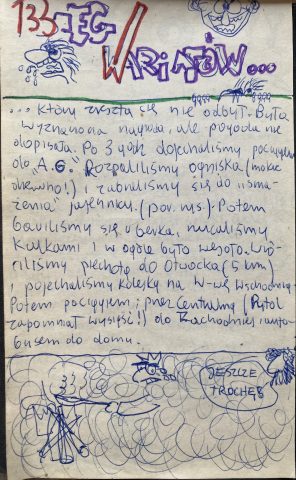 133 BIEG
WARIATÓW...
... który zresztą się nie odbył. Była
wyznaczona nagroda, ale pogoda nie
dopisała. Po 3 godz dojechaliśmy pociągiem
do "A.G." Rozpaliliśmy ogniska (mokre
drewno!) i zabraliśmy się do sma-
żenia jajecznicy. (por. rys.). Potem
bawiliśmy się w berka, rzucaliśmy
kulkami i w ogóle było wesoło. Wró-
ciliśmy piechotą do Otwocka (5 km)
i pojechaliśmy kolejką na W-wę Wschodnią.
Potem pociągiem przez Centralną (
zapomniał wysiąść!) do Zachodniej i auto-
busem do domu.
JESZCZE
TROCHĘ?